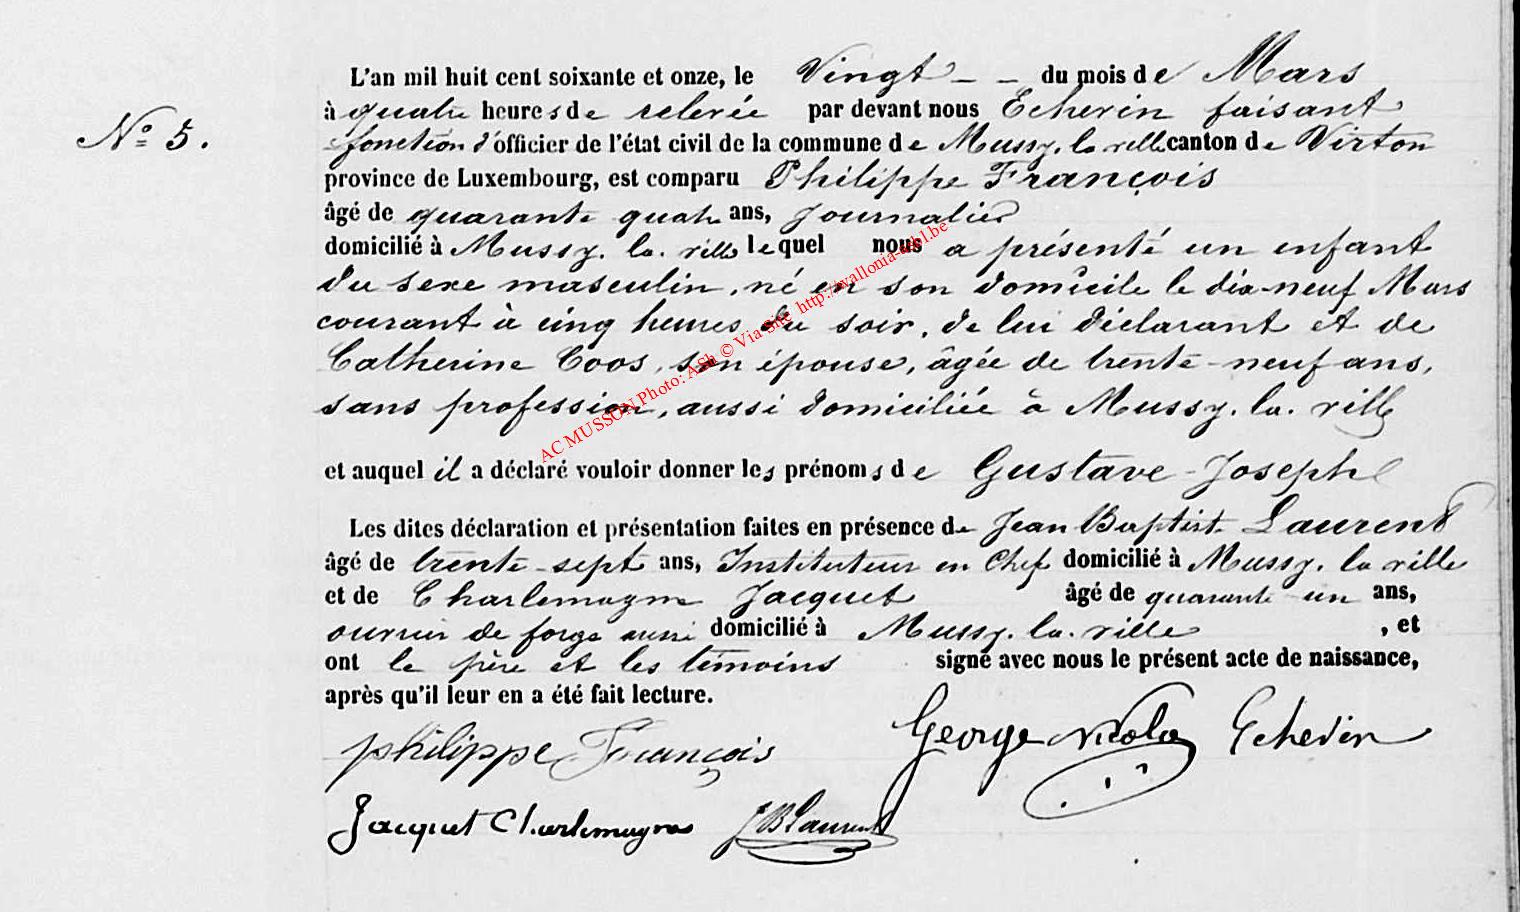 L'an mil huit cent soixante et onze, le Vingt - - du mois de Mars
N° 5.
à quatre heures de relevée par devant nous Echevin faisant
fonction d'officier de l'état civil de la commune de Mussy. la ville canton de Virton
province de Luxembourg, est comparu Philippe François
âgé de quarante quatre ans, Journalier
domicilié à Mussy. la. ville lequel nous a présenté un enfant
du sexe masculin, né en son domicile le dix-neuf Mars
courant à cinq heures du soir, de lui déclarant et de
Catherine Coos, son épouse, âgée de trente-neuf ans,
sans profession, aussi domiciliée à Mussy. la. ville
et auquel il a déclaré vouloir donner les prénoms de Gustave-Joseph
Les dites déclaration et présentation faites en présence de Jean Baptiste Laurent
âgé de trente-sept ans, Instituteur en Chef domicilié à Mussy. la ville
et de Charlemagne Jacquet âgé de quarante un ans,
ouvrier de forge aussi domicilié à Mussy. la. ville , et
ont le père et les témoins signé avec nous le présent acte de naissance,
après qu'il leur en a été fait lecture.
philippe François George Nicolas Echevin
Jacquet Charlemagne JBLaurent
AC MUSSON Photo: ASh © Via Site http://wallonia-asbl.be